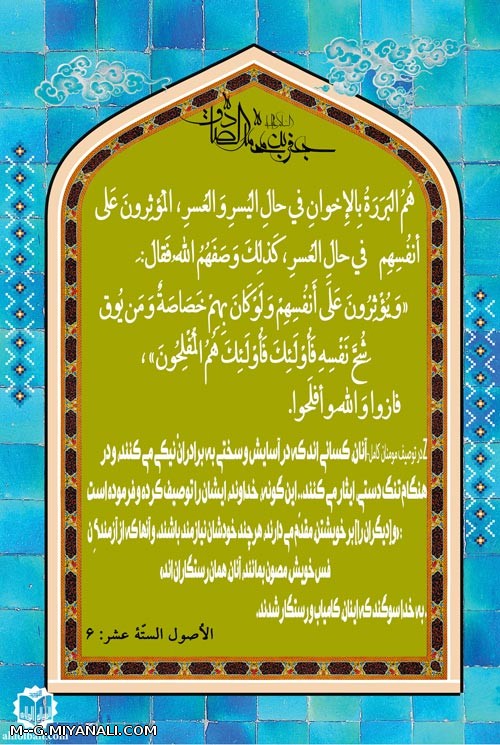 جعفر بن محمد الصادق
هُمُ البَرَرَةُ بِالإِخوانِ في حالِ اليُسرِ وَالعُسرِ، المُؤثِرونَ عَلى
أنفُسِهِم في حالِ العُسرِ، كَذلِكَ وَصَفَهُمُ اللهُ فَقالَ:
«وَيُؤْثِرُونَ عَلَى أَنفُسِهِمْ وَلَوْ كَانَ بِهِمْ خَصَاصَةٌ وَمَن يُوقَ
شُحَّ نَفْسِهِ فَأُوْلَئِكَ فَأُوْلَئِكَ هُمُ الْمُفْلِحُونَ»،
فازوا وَاللهِ وأفلَحوا.
در توصیف مومنان کامل: آنان، کسانی اند که در آسایش و سختی به برادران نیکی می کنند و در
هنگام تنگ دستی ایثار می کنند.. این گونه، خداوند، ایشان را توصیف کرده و فرموده است
: «و[دیگران را] بر خویشتن مقدّم می دارند، هر چند خودشان نیازمند باشند، و آنها که از آزمندیِ ن
فس خویش مصون بمانند، آنان همان رستگاران اند»
. به خدا سوگند که اینان کامیاب و رستگار شدند.
الأصول الستّة عشر: ۶
M--G.MIYANALI.COM